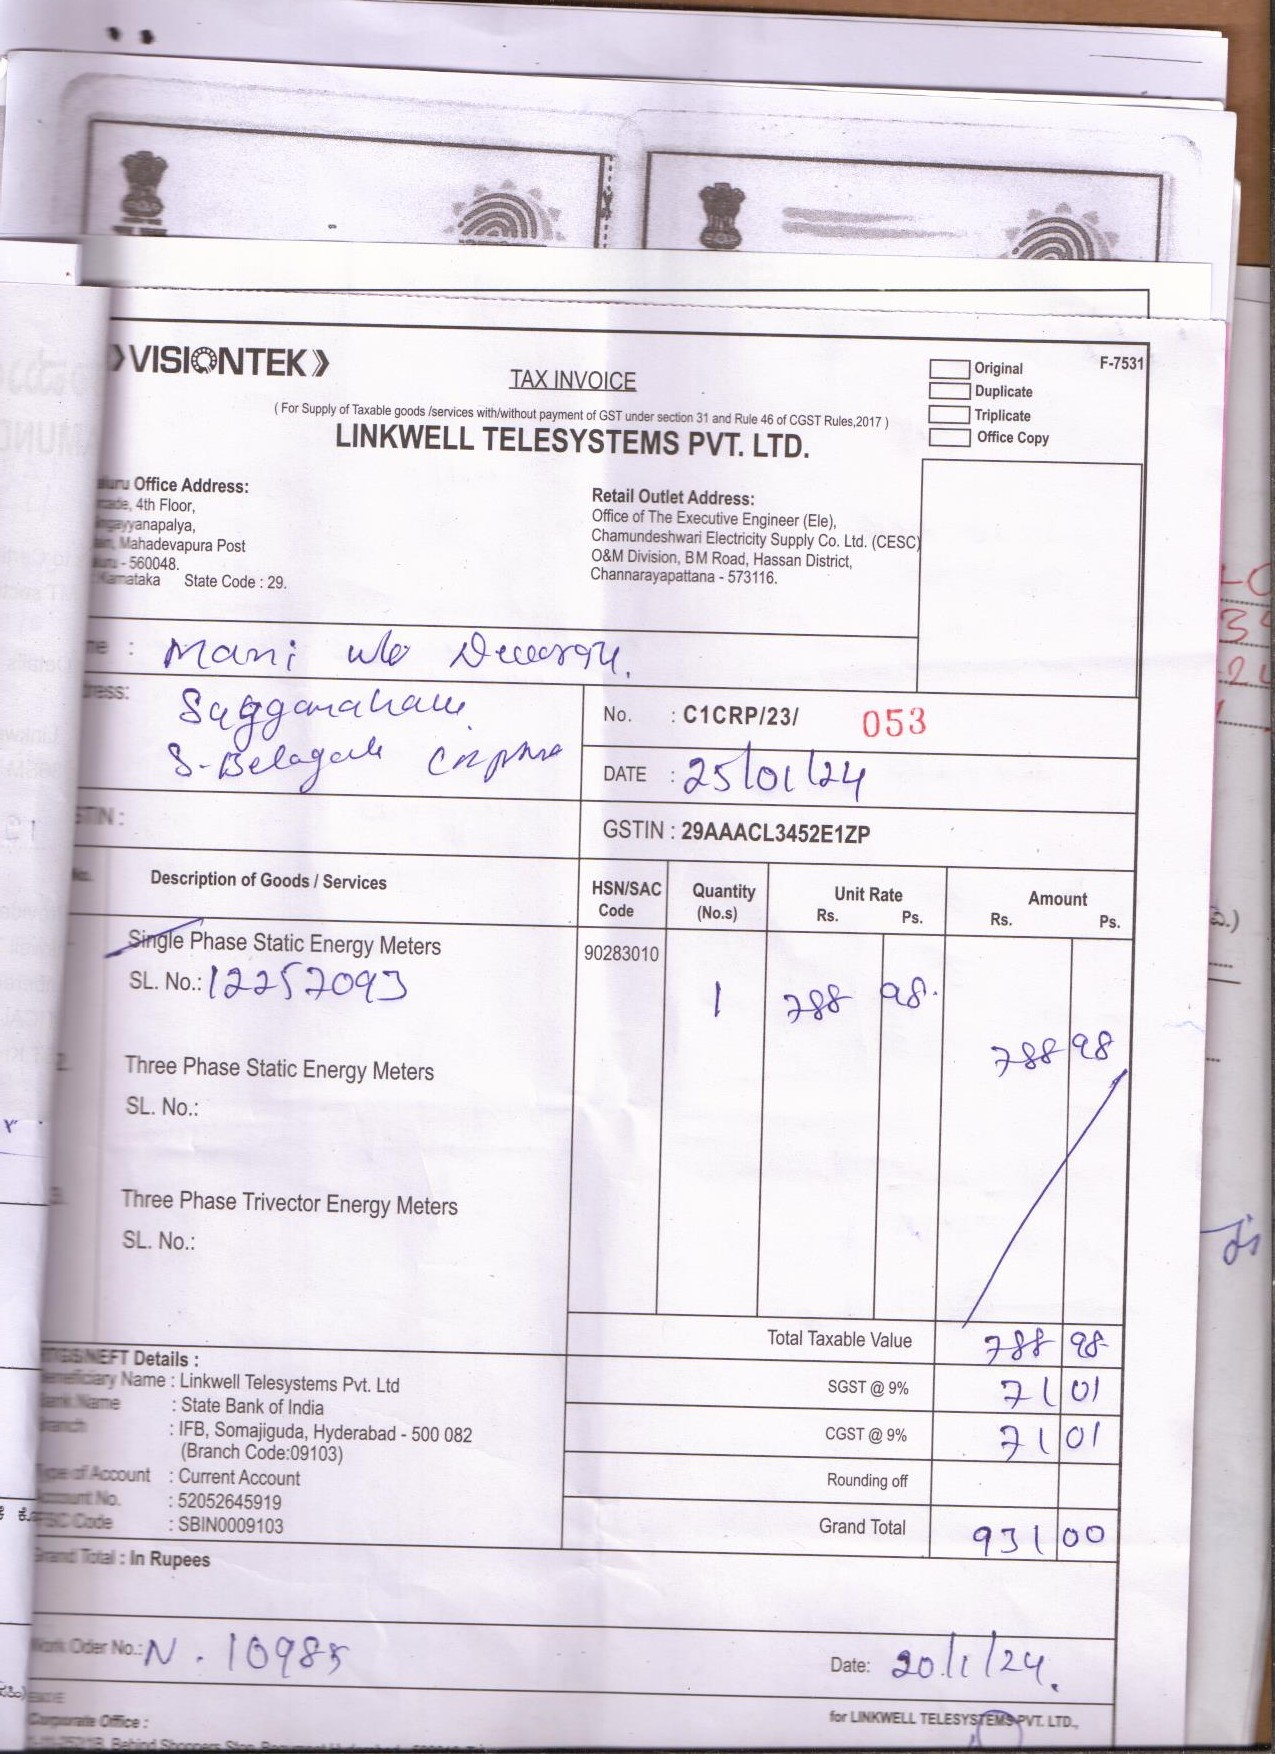 VISIONTEK
TAX INVOICE
Original
F-7531
Duplicate
Triplicate
Office Copy
( For Supply of Taxable goods /services with/without payment of GST under section 31 and Rule 46 of CGST Rules,2017 )
LINKWELL TELESYSTEMS PVT. LTD.
Office Address:
4th Floor,
Mahadevapura Post
- 560048.
Karnataka State Code : 29.
Retail Outlet Address:
Office of The Executive Engineer (Ele),
Chamundeshwari Electricity Supply Co. Ltd. (CESC)
O&M Division, BM Road, Hassan District,
Channarayapattana - 573116.
: Mani w/o
No. : C1CRP/23/ 053
S-Belagali
DATE : 25/01/24
GSTIN : 29AAACL3452E1ZP
Description of Goods / Services
HSN/SAC Code
Quantity (No.s)
Unit Rate Rs. Ps.
Amount Rs. Ps.
Single Phase Static Energy Meters 90283010
SL. No.: 12257093 1 788 98. 788 98
2. Three Phase Static Energy Meters
SL. No.:
3. Three Phase Trivector Energy Meters
SL. No.:
Total Taxable Value 788 98
SGST @ 9% 71 01
CGST @ 9% 71 01
Rounding off
Grand Total 931 00
NEFT Details :
Beneficiary Name : Linkwell Telesystems Pvt. Ltd
Bank Name : State Bank of India
Branch : IFB, Somajiguda, Hyderabad - 500 082
(Branch Code:09103)
Type of Account : Current Account
Account No. : 52052645919
Code : SBIN0009103
Grand Total : In Rupees
Work Oder No.: N . 10985
Date: 20/1/24.
for LINKWELL TELESYSTEMS PVT. LTD.,
Corporate Office :